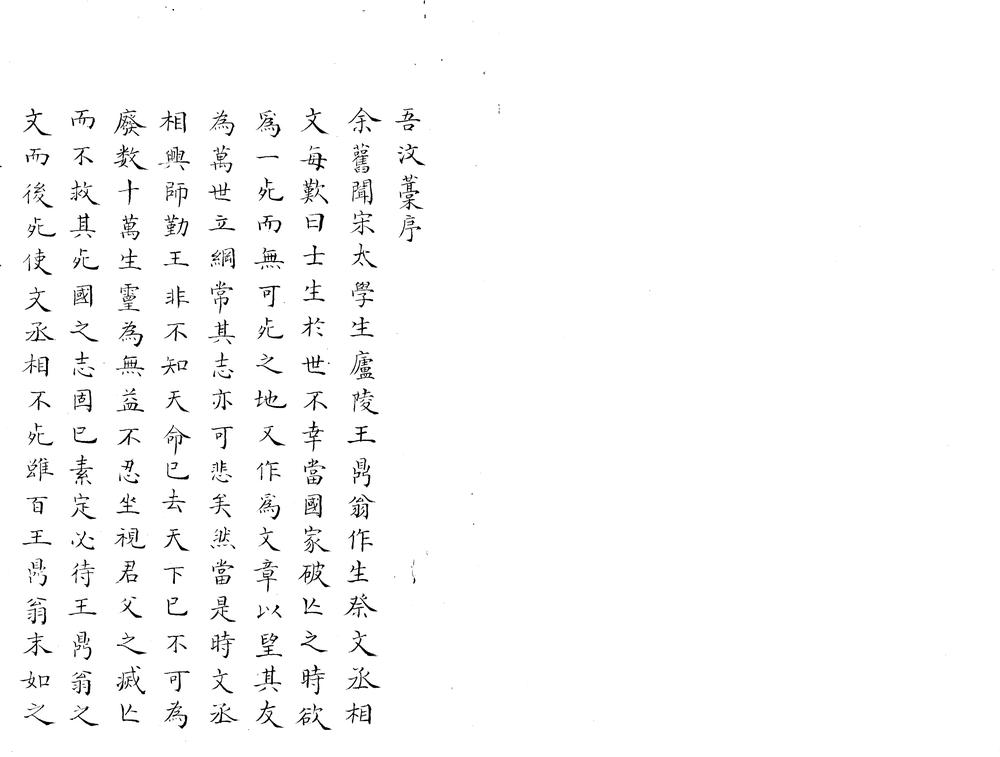 吾汶藁序
余舊聞宋太學生廬陵王鼎翁作生祭文丞相
文每歎曰士生於世不幸當國家破亾之時欲
爲一死而無可死之地又作爲文章以望其友
為萬世立綱常其志亦可悲矣然當是時文丞
相興師勤王非不知天命已去天下已不可為
廢数十萬生靈為無益不忍坐視君父之滅亾
而不救其死國之志固已素定必待王鼎翁之
文而後死使文丞相不死雖百王鼎翁末如之